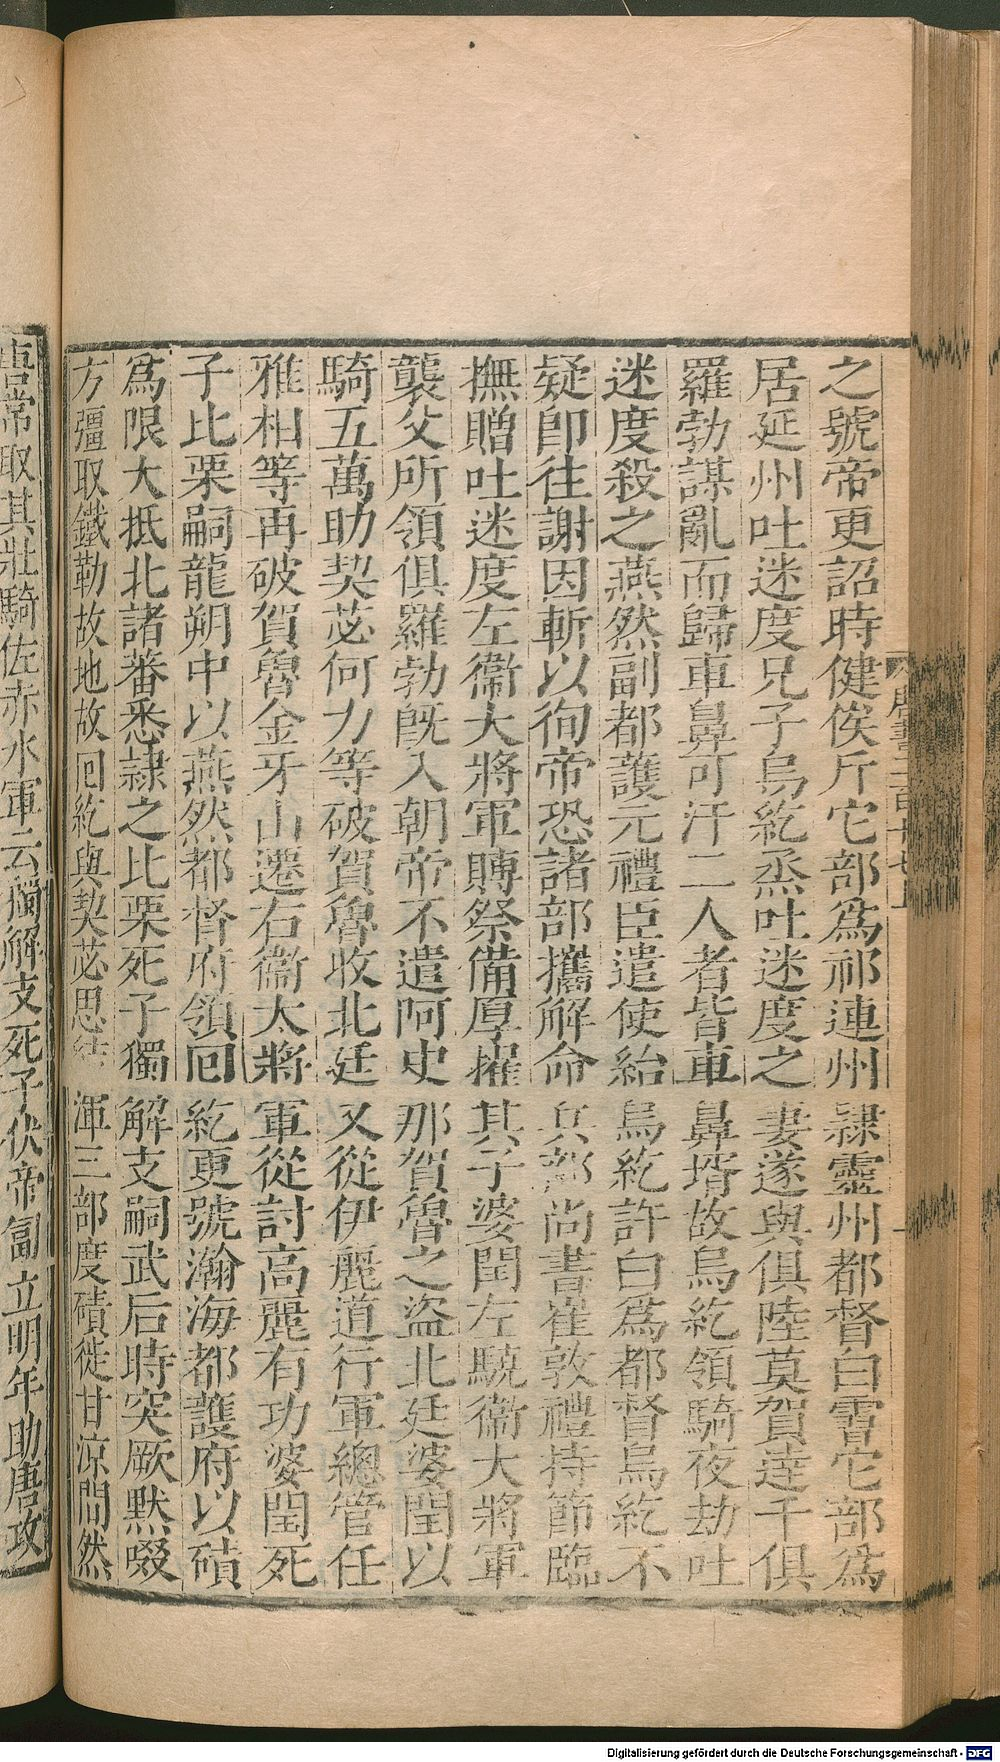 之號帝更詔時健俟斤它部爲祁連州隷靈州都督白霫它部爲
居延州吐迷度兄子烏紇烝吐迷度之妻遂與俱陸莫賀達干俱
羅勃謀亂而歸車鼻可汗二人者皆車鼻壻故烏紇領騎夜劫吐
迷度殺之燕然副都護元禮臣遣使紿烏紇許白爲都督烏紇不
疑卽往謝因斬以徇帝恐諸部攜解命兵部尚書崔敦禮持節臨
撫贈吐迷度左衞大將軍賻祭備厚擢其子婆閏左驍衞大將軍
襲父所領俱羅勃旣入朝帝不遣阿史那賀魯之盜北廷婆閏以
騎五萬助契苾何力等破賀魯收北廷又從伊麗道行軍總管任
雅相等再破賀魯金牙山遷右衞大將軍從討高麗有功婆閏死
子比栗嗣龍朔中以燕然都督府領回紇更號瀚海都護府以磧
爲限大抵北諸蕃悉隷之比栗死子獨解支嗣武后時突厥默啜
方彊取鐵勒故地故回紇與契苾思結渾三部度磧徙甘涼間然
唐常取其壯騎佐赤水軍云獨解支死子伏帝匐立明年助唐攻
唐書二百十七上
Digitalisierung gefördert durch die Deutsche Forschungsgemeinschaft - DFG